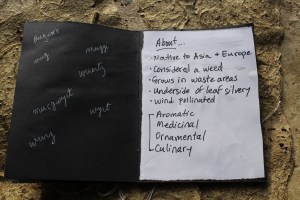 mugg
mug
wurtz
mucgwyrt
wyrt
wurz
About...
• Native to Asia + Europe
• Considered a weed
• Grows in waste areas
• Underside of leaf silvery
• Wind pollinated
Aromatic
Medicinal
Ornamental
Culinary